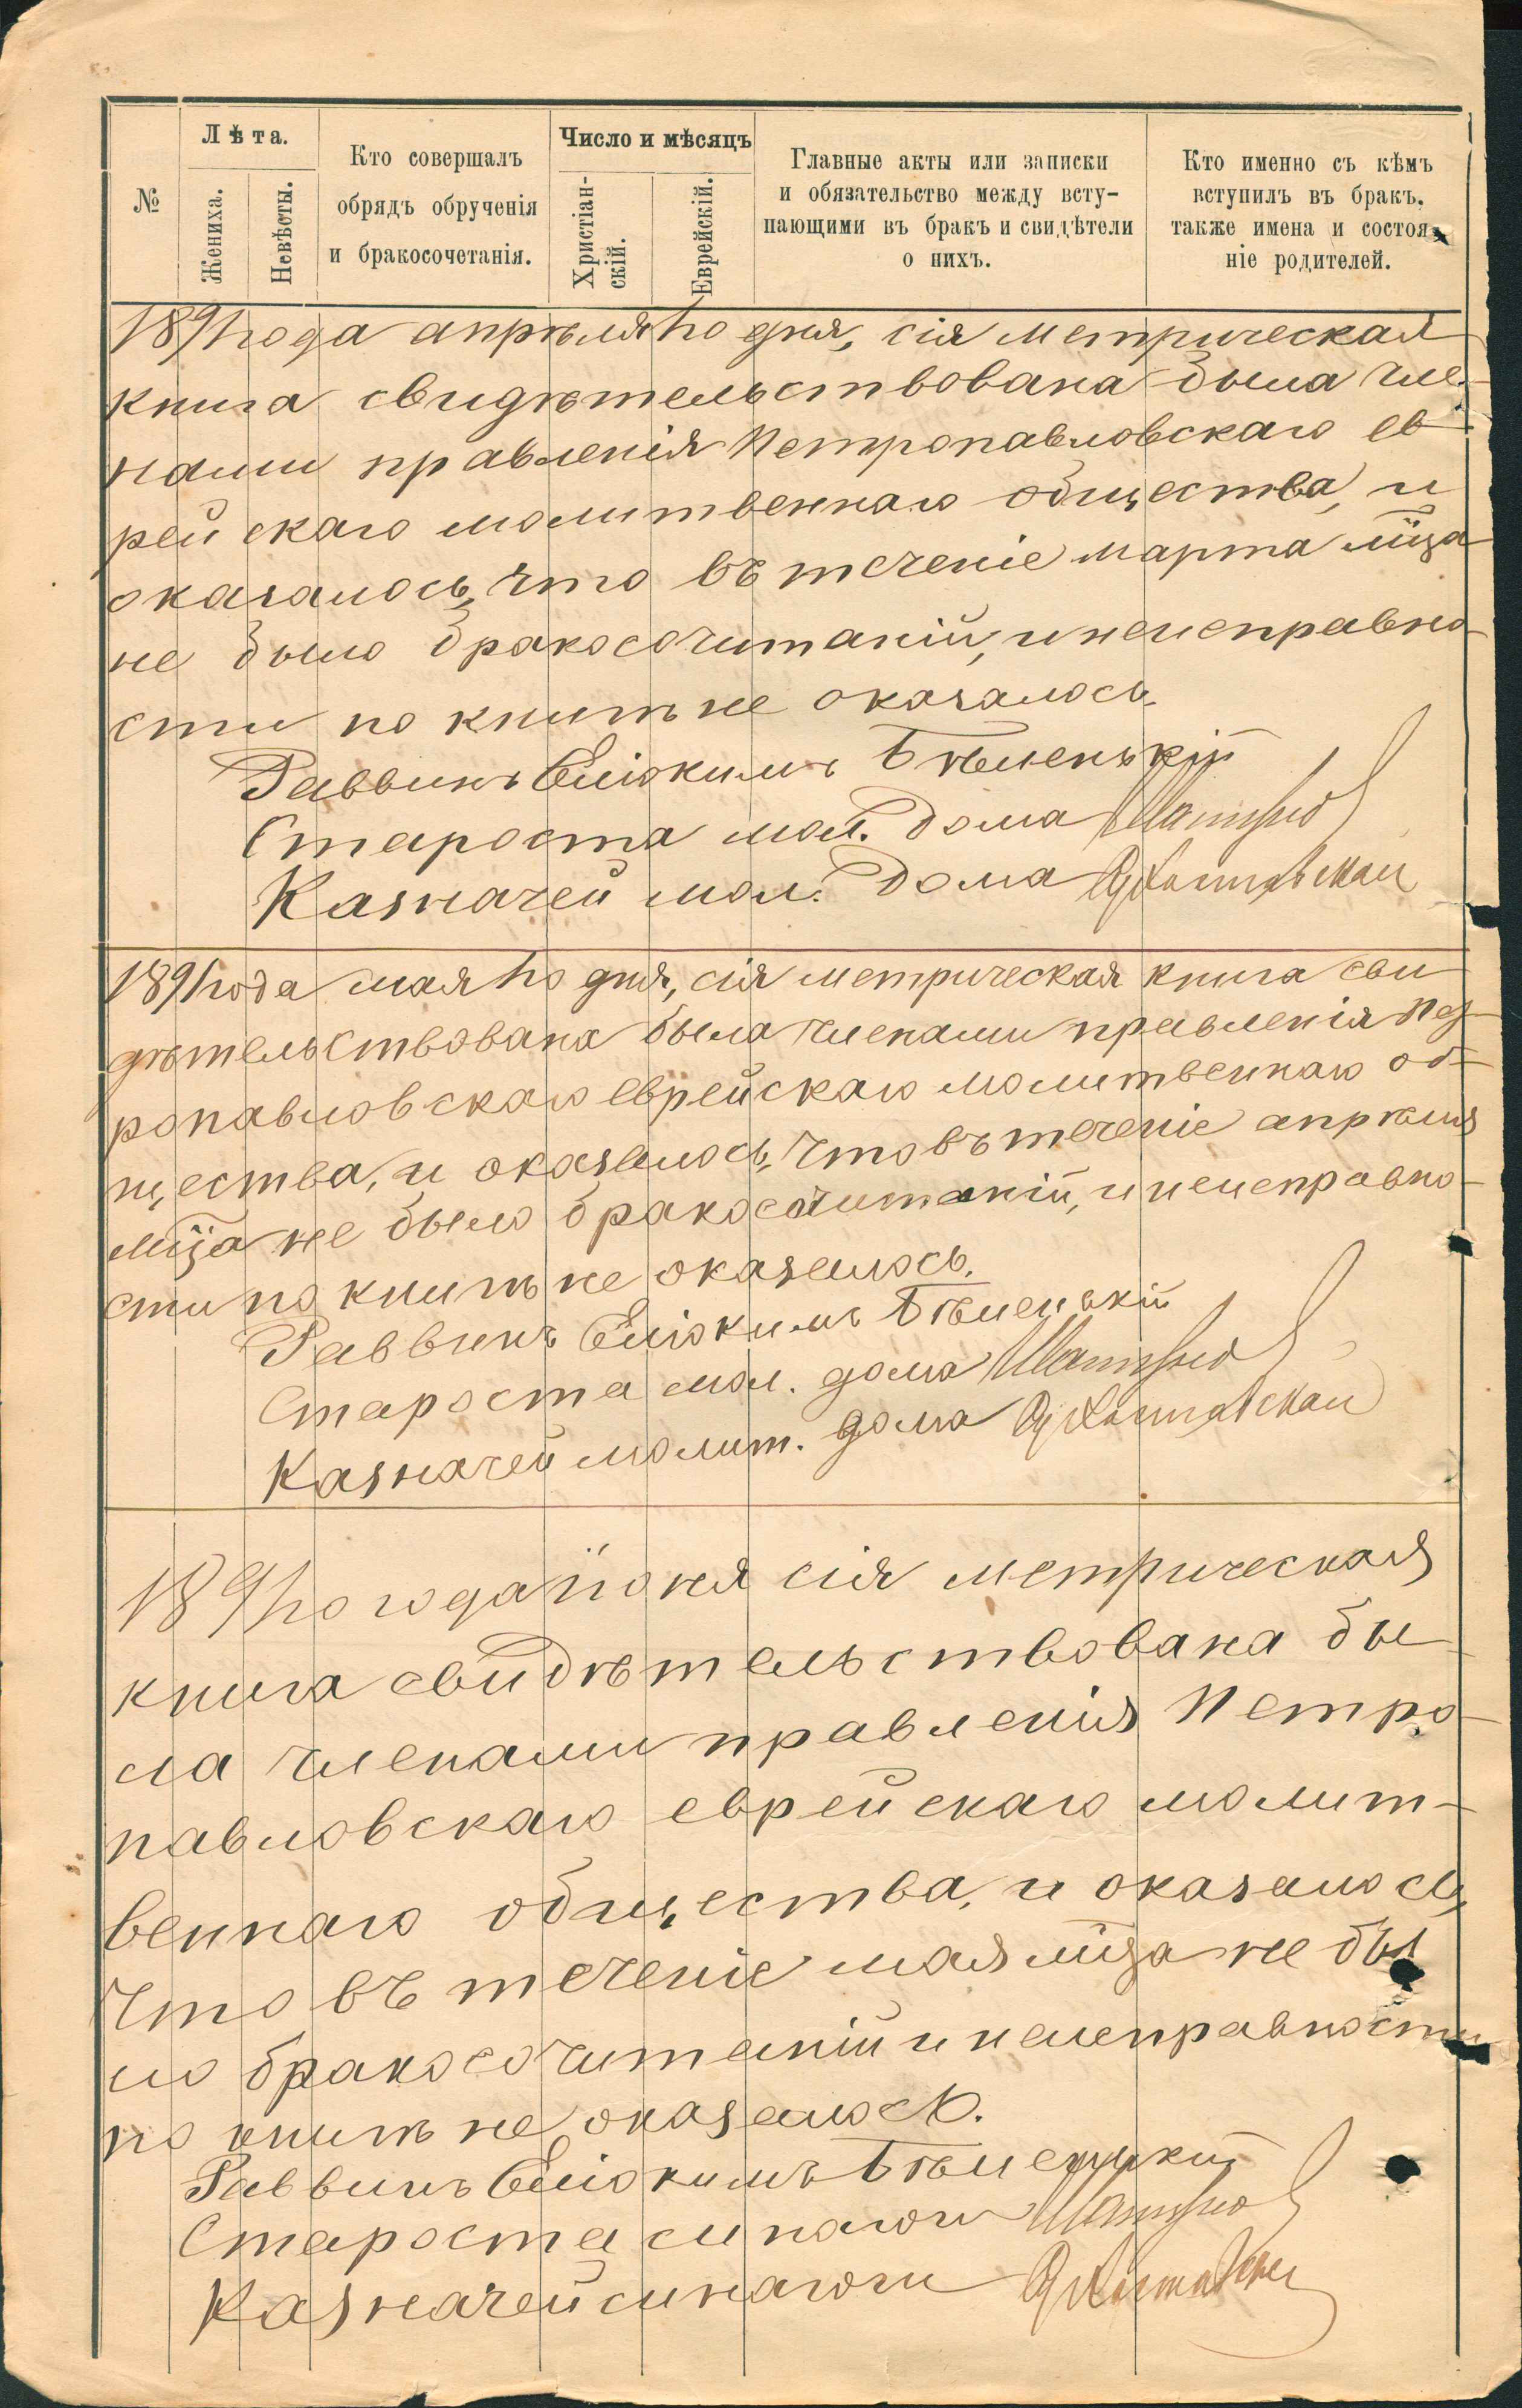 №
Лѣта.
Жениха.
Невѣсты.
Кто совершалъ
обрядъ обрученія
и бракосочетанія.
Число и мѣсяцъ
Христіан-
скій.
Еврейскій.
Главные акты или записки
и обязательство между всту-
пающими въ бракъ и свидѣтели
о нихъ.
Кто именно съ кѣмъ
вступилъ въ бракъ,
также имена и состоя-
ніе родителей.
1891 года апрѣля 1го дня, сія метрическая
книга свидѣтельствована была чле-
нами правленія Петропавловскаго ев-
рейскаго молитвеннаго общества, и
оказалось, что въ теченіе марта мѣца
не было бракосочитаній, и неисправно-
сти по книгѣ не оказалось.
Раввинъ Еліокимъ Бѣленькій
Староста мол. дома
Казначей мол. дома
1891 года мая 1го дня, сія метрическая книга сви-
дѣтельствована была членами правленія Пет-
ропавловскаго еврейскаго молитвеннаго об-
щества, и оказалось, что въ теченіе апрѣля
мѣца не было бракосочитаній, и неисправно-
сти по книгѣ не оказалось.
Раввинъ Еліокимъ Бѣленькій
Староста мол. дома
Казначей молит. дома
1891го года іюня сія метрическая
книга свидѣтельствована бы-
ла членами правленія Петро-
павловскаго еврейскаго молит-
веннаго общества, и оказалось,
что въ теченіе мая мѣца не бы
ло бракосочитаній и неисправности
по книгѣ не оказалось.
Раввинъ Еліокимъ Бѣленькій
Староста синагоги
Казначей синагоги